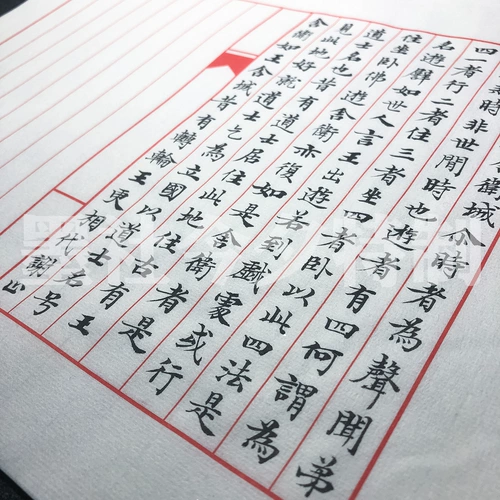 衛城尒時者為聲聞弟
時非世間時也遊者有四何謂為
四一者行二者住三者坐四者臥以此四法是
名遊譬如世人言王出遊若到戲處或行
住坐臥佛遊舍衛亦復如是舍衛者是
道士名也昔有道士居住此地往古有王
見此地好就道士乞為立國以道士名号
舍衛如王舍城昔有轉輪王更相代謝止